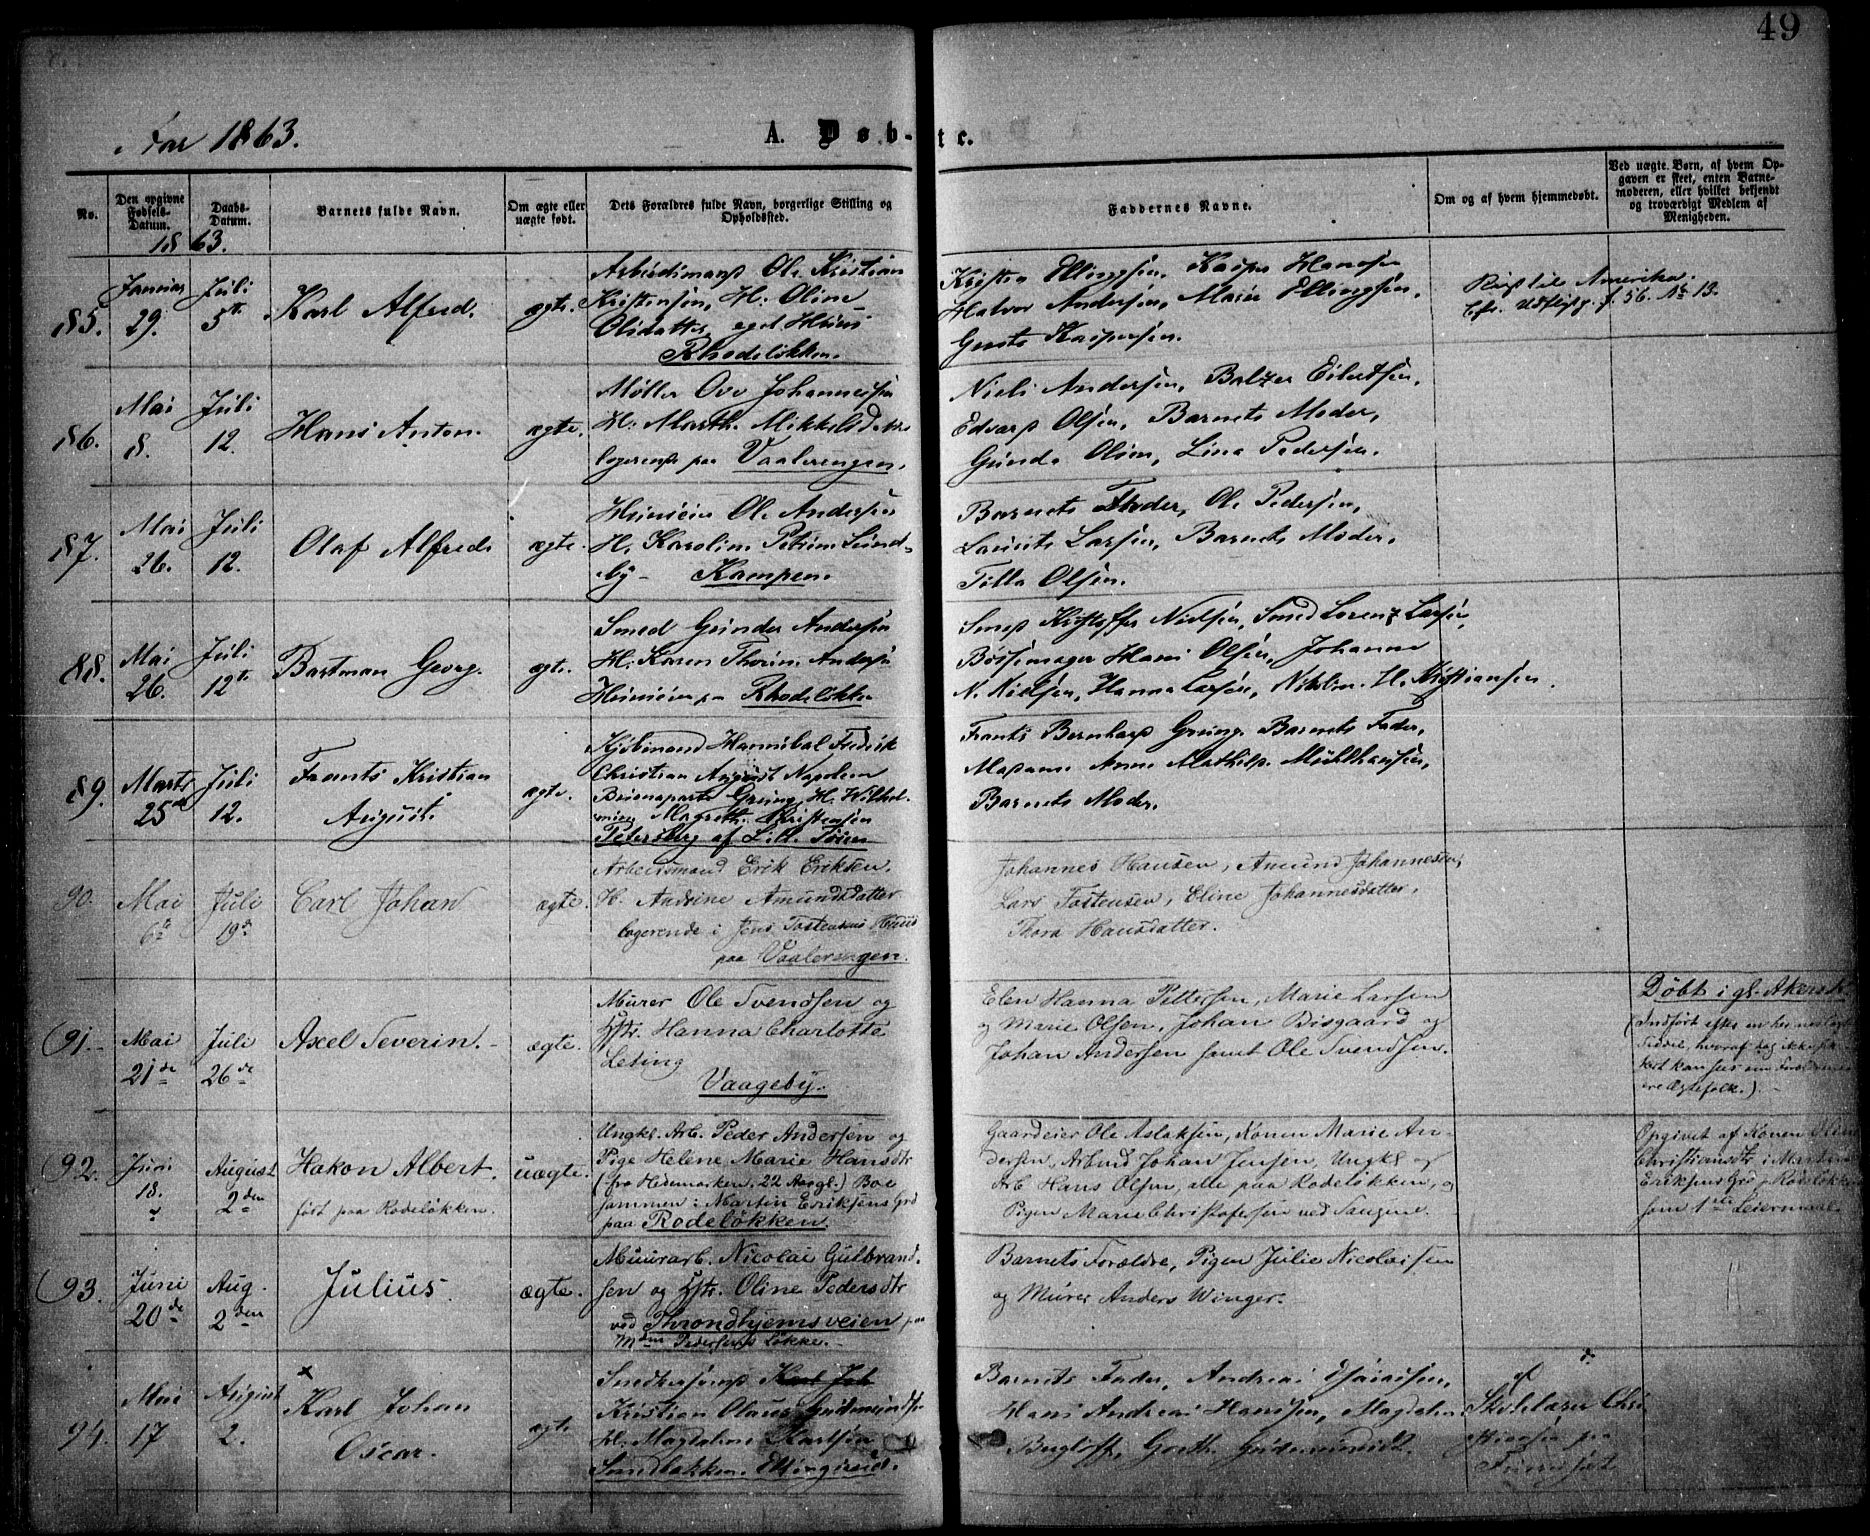 49
For 1863.
A. Døbte.
No.
Den opgivne Fødsels-Datum.
Daabs-Datum.
Barnets fulde Navn.
Om ægte eller uægte født.
Dets Forældres fulde Navn, borgerlige Stilling og Opholdssted.
Faddernes Navne.
Om og af hvem hjemmedøbt.
Ved uægte Børn, af hvem Opgaven er skeet, enten Barnemoderen, eller hvilket bekjendt og troværdigt Medlem af Menigheden.
1863.
85.
Januar
29.
Juli
5te
Karl Alfred.
ægte.
Arbeidsmand Ole Kristian
Kristensen, H: Oline
Olsdatter, eget Huus
Rhodeløkken.
Ellingsen, Kasper Hansen
Halvor Andersen, Marie Ellingsen,
Kaspersen.
Reist til Amerika.
cfr. Udflytg. f. 56. No 13.
86.
Mai
8.
Juli
12.
Hans Anton.
ægte.
Møller Ove Johannessen
H: Marth. Mikkelsdatter
logerende paa Vaalerengen.
Niels Andersen, Balzer Eilertsen,
Edvard Olsen, Barnets Moder,
Gunda Olsen, Lina Pedersen.
87.
Mai
26.
Juli
12.
Olaf Alfred.
ægte.
Huuseier Ole Andersen
H. Karolin. Petrine Sund-
by – Kampen.
Barnets Fader, Ole Pedersen,
Laurits Larsen, Barnets Moder,
Tilla Olsen.
88.
Mai
26.
Juli
12te
Bastman Georg.
ægte.
Smed Gunder Andersen
H. Karen Thorine Andersen
Huuseier paa Rhodeløkken
Smed Kristoffer Nielsen, Smed Lorenz Larsen,
Bøssemager Hans Olsen, Johanne
N. Nielsen, Hanna Larsen, Nikolin. H. Kristiansen.
89.
Marts
25de
Juli
12.
Frants Kristian
August.
ægte.
Kjøbmand Hannibal Fredrik
Christian August Napoleon
Buonaparte Grung, H. Wilhel-
mine Magreth. Christensen
Petersborg af Lill. Tøien
Frants Bernhard Grung. Barnets Fader,
Madame Anne Mathilde Mühlhausen,
Barnets Moder.
90.
Mai
6te
Juli
19de
Carl Johan
ægte.
Arbeidsmand Erik Eriksen.
H. Andrine Amundsdatter
logerende i Jens Tostensens Huus
paa Vaalerengen.
Johannes Hansen, Amund Johannesen,
Lars Tostensen, Eline Johannesdatter,
Thora Hansdatter.
(91.
Mai
21de
Juli
26de
Axel Severin.
ægte.
Murer Ole Svendsen og
Hstr. Hanna Charlotte
Leting
Vaageby.
Elen Hanna Pettersen, Marie Larsen
og Marie Olsen, Johan Bisgaard og
Johan Andersen samt Ole Svendsen.
Døbt i gl. Akers K.
(Indført efter en
Seddel, hvoraf dog ikke
kan sees om Forældrene
ere Ægtefolk.)
(92.
Juni
18.
August
2den
Hakon Albert.
født paa Rodeløkken.
uægte.
Ungkl. Arb. Peder Andersen og
Pige Helene Marie Hansdtr
(fra Hedemarken, 22 Aar gl.) Boe
sammen i Martin Eriksens Grd
paa Rodeløkken.
Gaardeier Ole Aslaksen, Konen Marie An-
dersen, Arbmd Johan Jensen, Ungkl og
Arb. Hans Olsen, alle paa Rodeløkken, og
Pigen Marie Christofersen ved Saugene.
Opgivet af Konen Oline
Christiansdtr i Martin
Eriksens Grd p. Rodeløkken
som 1ste Leiermaal.
(93.
Juni
20de
Aug.
2den
Julius.
ægte.
Muurarb. Nicolai Gulbrand-
sen og Hstr. Oline Pedersdtr
ved Throndhjemsveien paa
Mdm Pedersens Løkke.
Barnets Forældre, Pigen Julie Nicolaisen
og Murer Anders Winger.
94.
Mai
17
August
2.
Karl Johan
Oscar.
ægte
Snedkersvend Karl Joh
Kristian Olaus Gudmundsen
H. Magdalene Karlsen
Smedbakken.
Barnets Fader, Andreas Esaiasen,
Hans Andreas Hanssen, Magdalene
Bugloff,
af
Skolelærer
paa